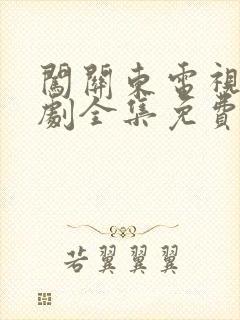 闖關東電視
劇全集免費
若翼翼翼